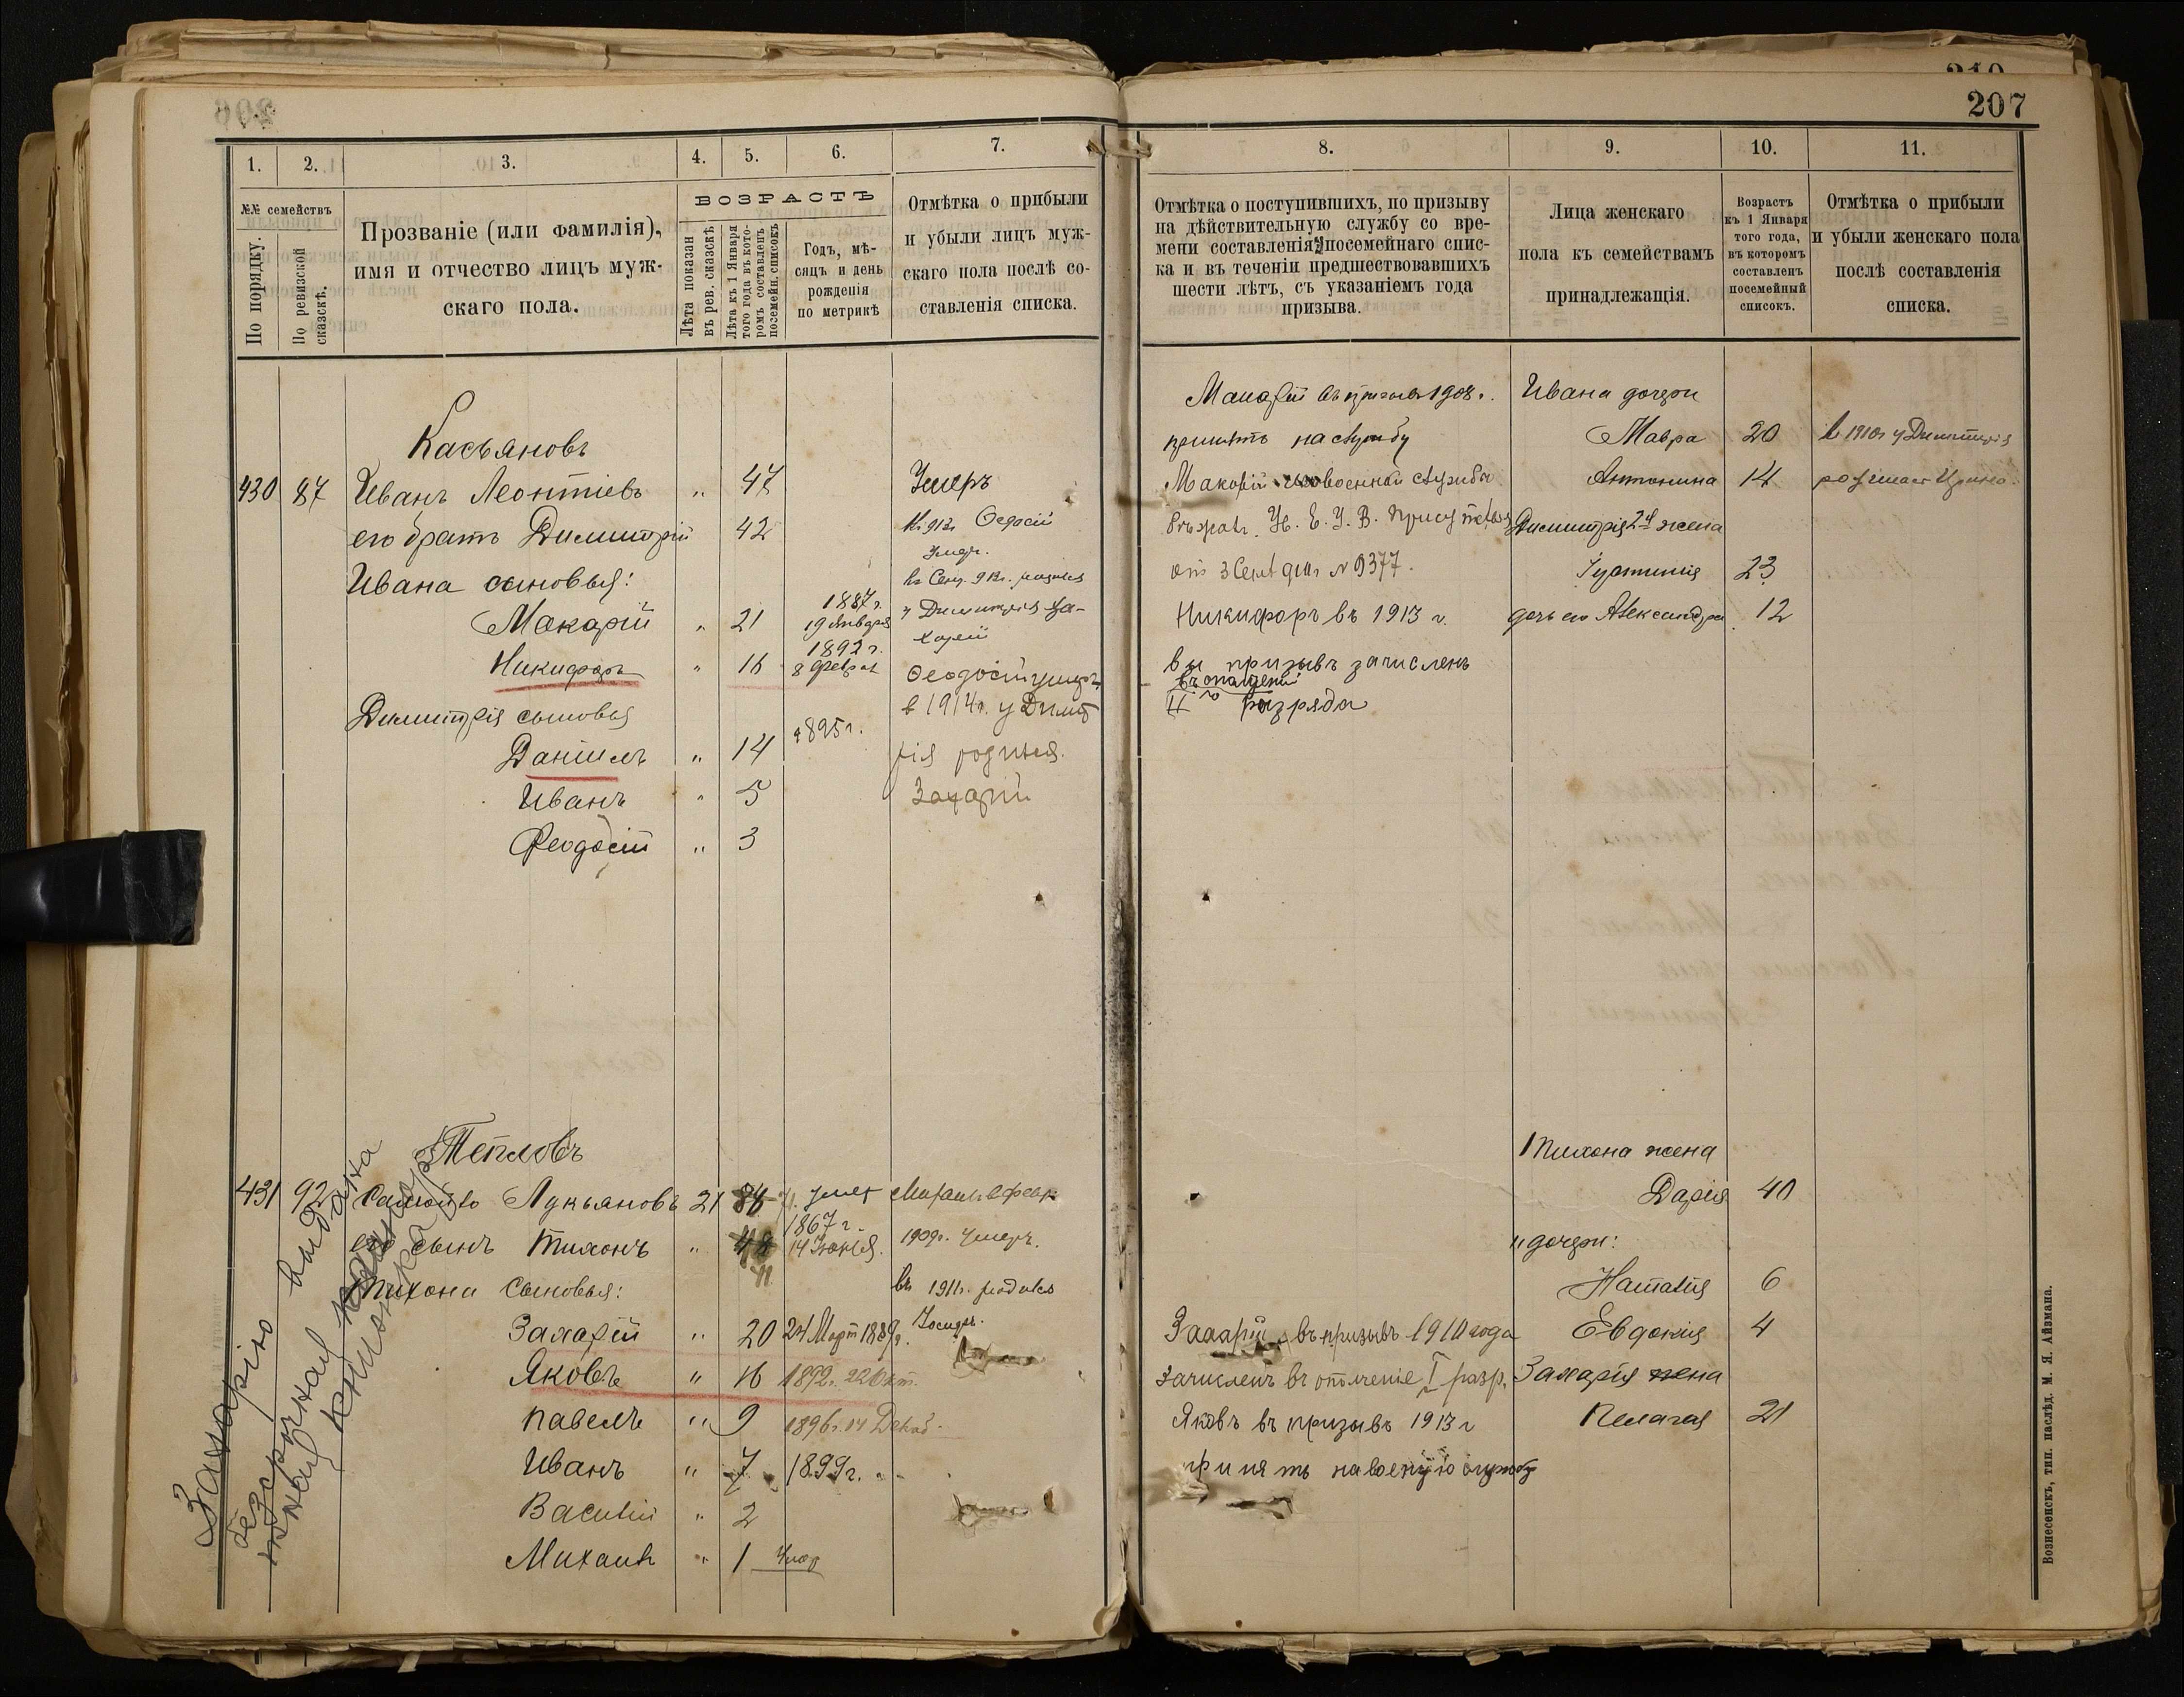 207
1.
2.
3.
4.
5.
6.
7.
№№ семействъ
По порядку.
По ревизской сказскѣ.
Прозваніе (или фамилія),
имя и отчество лицъ муж-
скаго пола.
ВОЗРАСТЪ
Лѣта показан въ рев. сказскѣ
Лѣта къ 1 Января того года въ кото- ромъ составленъ посемейн. списокъ
Годъ, мѣ-
сяцъ и день
рожденія
по метрикѣ
Отмѣтка о прибыли
и убыли лицъ муж-
скаго пола послѣ со-
ставленія списка.
Касьяновъ
430 87 Иванъ Леонтіевъ " 47 Умеръ
его братъ Димитрій 42 Федосій
Ивана сыновья:
Макарій " 21 1887 г. 19 Января у Димитрія За-
харій
Никифоръ " 16 1892 г. 8 Феврал Феодосій умеръ
Димитрія сыновья в 1914 г. у Димит
Даніилъ " 14 1895 г. рія родился
Иванъ " 5 Захарій
Феодосій " 3
Тепловъ
431 92 Самойло Лукьяновъ 21 84
его сынъ Тихонъ " 48 41 1867 г. 14 Іюня. 1909 г. Умеръ.
Тихона сыновья: въ 1911 г. родился
Захарій " 20 24 Март 1889 г.
Яковъ " 16 1892 г. 22 Окт.
Павелъ " 9 1896 г. 14 Декаб.
Иванъ " 7 1899 г.
Василій " 2
Михаилъ " 1 Умер
Захарію выдана
безсрочная
8.
9.
10.
11.
Отмѣтка о поступившихъ, по призыву
на дѣйствительную службу со вре-
мени составленія посемейнаго спис-
ка и въ теченіи предшествовавшихъ
шести лѣтъ, съ указаніемъ года
призыва.
Лица женскаго
пола къ семействамъ
принадлежащія.
Возрастъ
къ 1 Января
того года,
въ которомъ
составленъ
посемейный
списокъ.
Отмѣтка о прибыли
и убыли женскаго пола
послѣ составленія
списка.
Макарій въ призывъ 1908 г. Ивана дочери
принятъ на службу Мавра 20 в 1910 г у Димитрія
Макарій военной службы Антонина 14
У. Е. У. В. Присутствія Димитрія 2я жена
от 3 Сент № 9377. Іустинія 23
Никифоръ въ 1913 г. дочь его Александра 12
въ призывъ зачисленъ
въ ополченіе
II го разряда
Тихона жена
Дарія 40
" дочери:
Наталія 6
Захарій въ призывъ 1910 года Евдокія 4
зачисленъ въ ополченіе I разр. Захарія жена
Яковъ въ призывъ 1913 г Пелагея 21
принятъ на военную службу
Вознесенскъ, тип. наслѣд. М. Я. Айзмана.